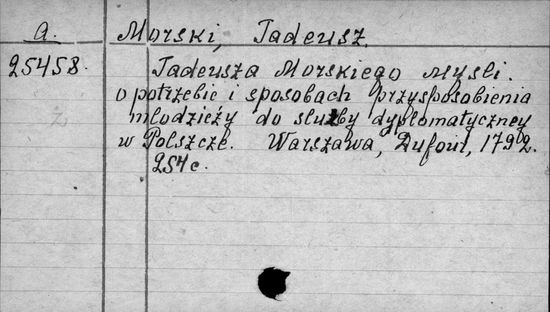 a. Morski, Tadeusz.
25458. Tadeusza Morskiego mysli.
o potrzebie i sposobach przysposobienia
młodzieży do służby dyplomatyczney
w Polszcze. Warszawa, Dufour, 1792.
254 c.